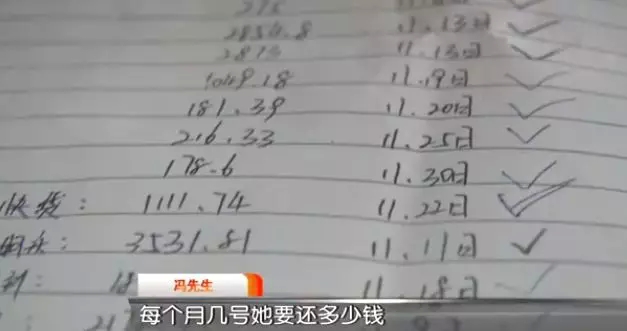 2854.8 11.13日
2813 11.13日
1049.18 11.19日
181.39 11.20日
216.33 11.25日
178.6 11.30日
快贷: 1111.74 11.22日
3531.81 11.11日
18 11.18日
冯先生
每个月几号她要还多少钱